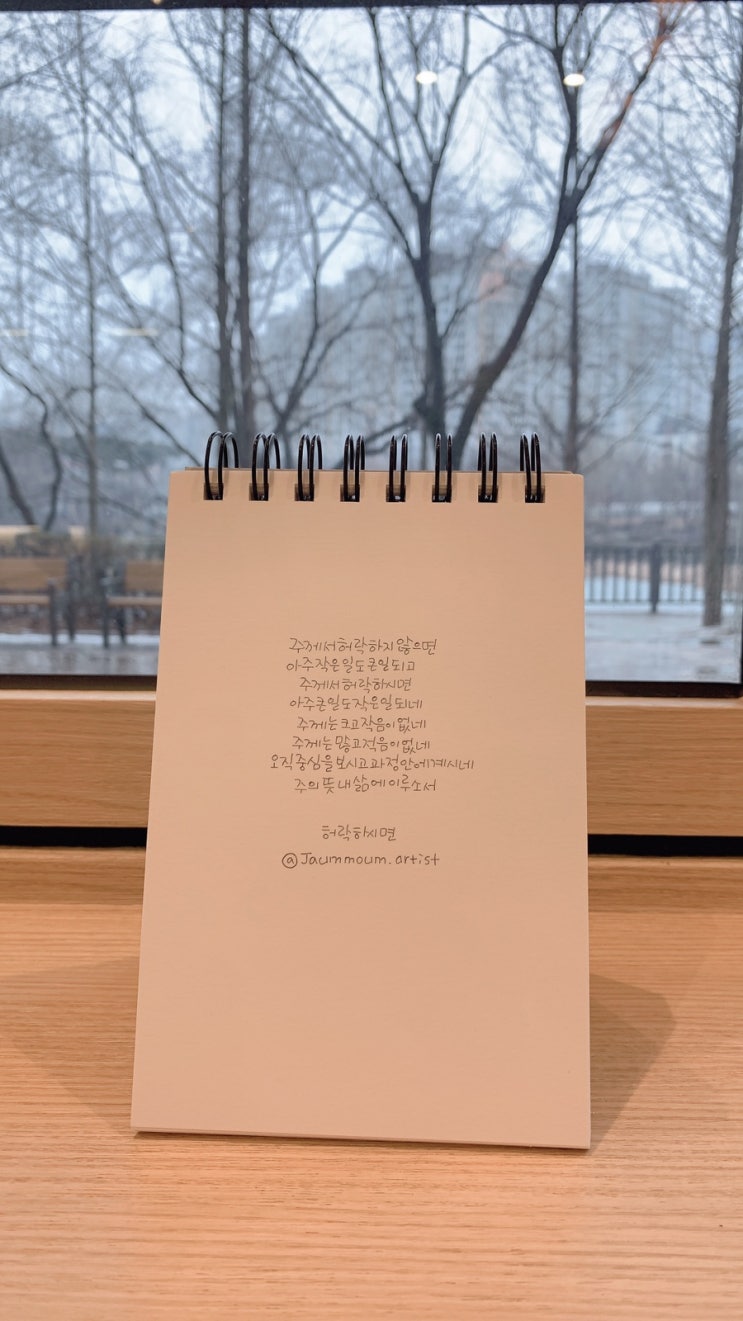 주께서 허락하지 않으면
아주 작은 일도 큰일 되고
주께서 허락하시면
아주 큰일도 작은 일 되네
주께는 크고 작음이 없네
주께는 많고 적음이 없네
오직 중심을 보시고 과정 안에 계시네
주의 뜻 내 삶에 이루소서
허락하시면
@Jaummoum.artist